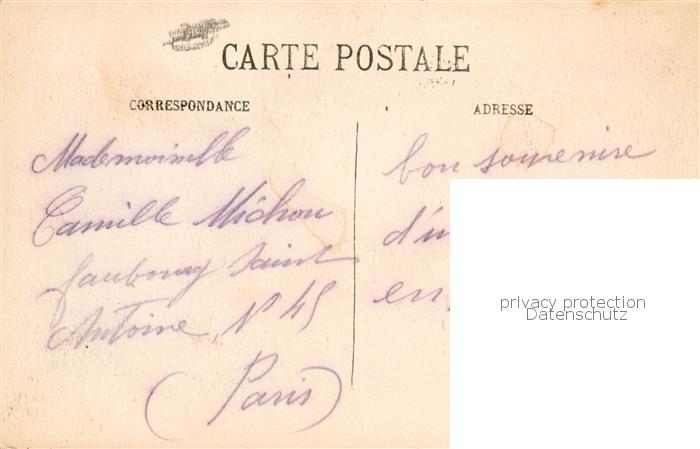 CARTE POSTALE
CORRESPONDANCE
ADRESSE
Mademoiselle
Camille Michou
faubourg Saint
Antoine, N° 45
(Paris)
bon souvenire
d'u
en
privacy protection
Datenschutz